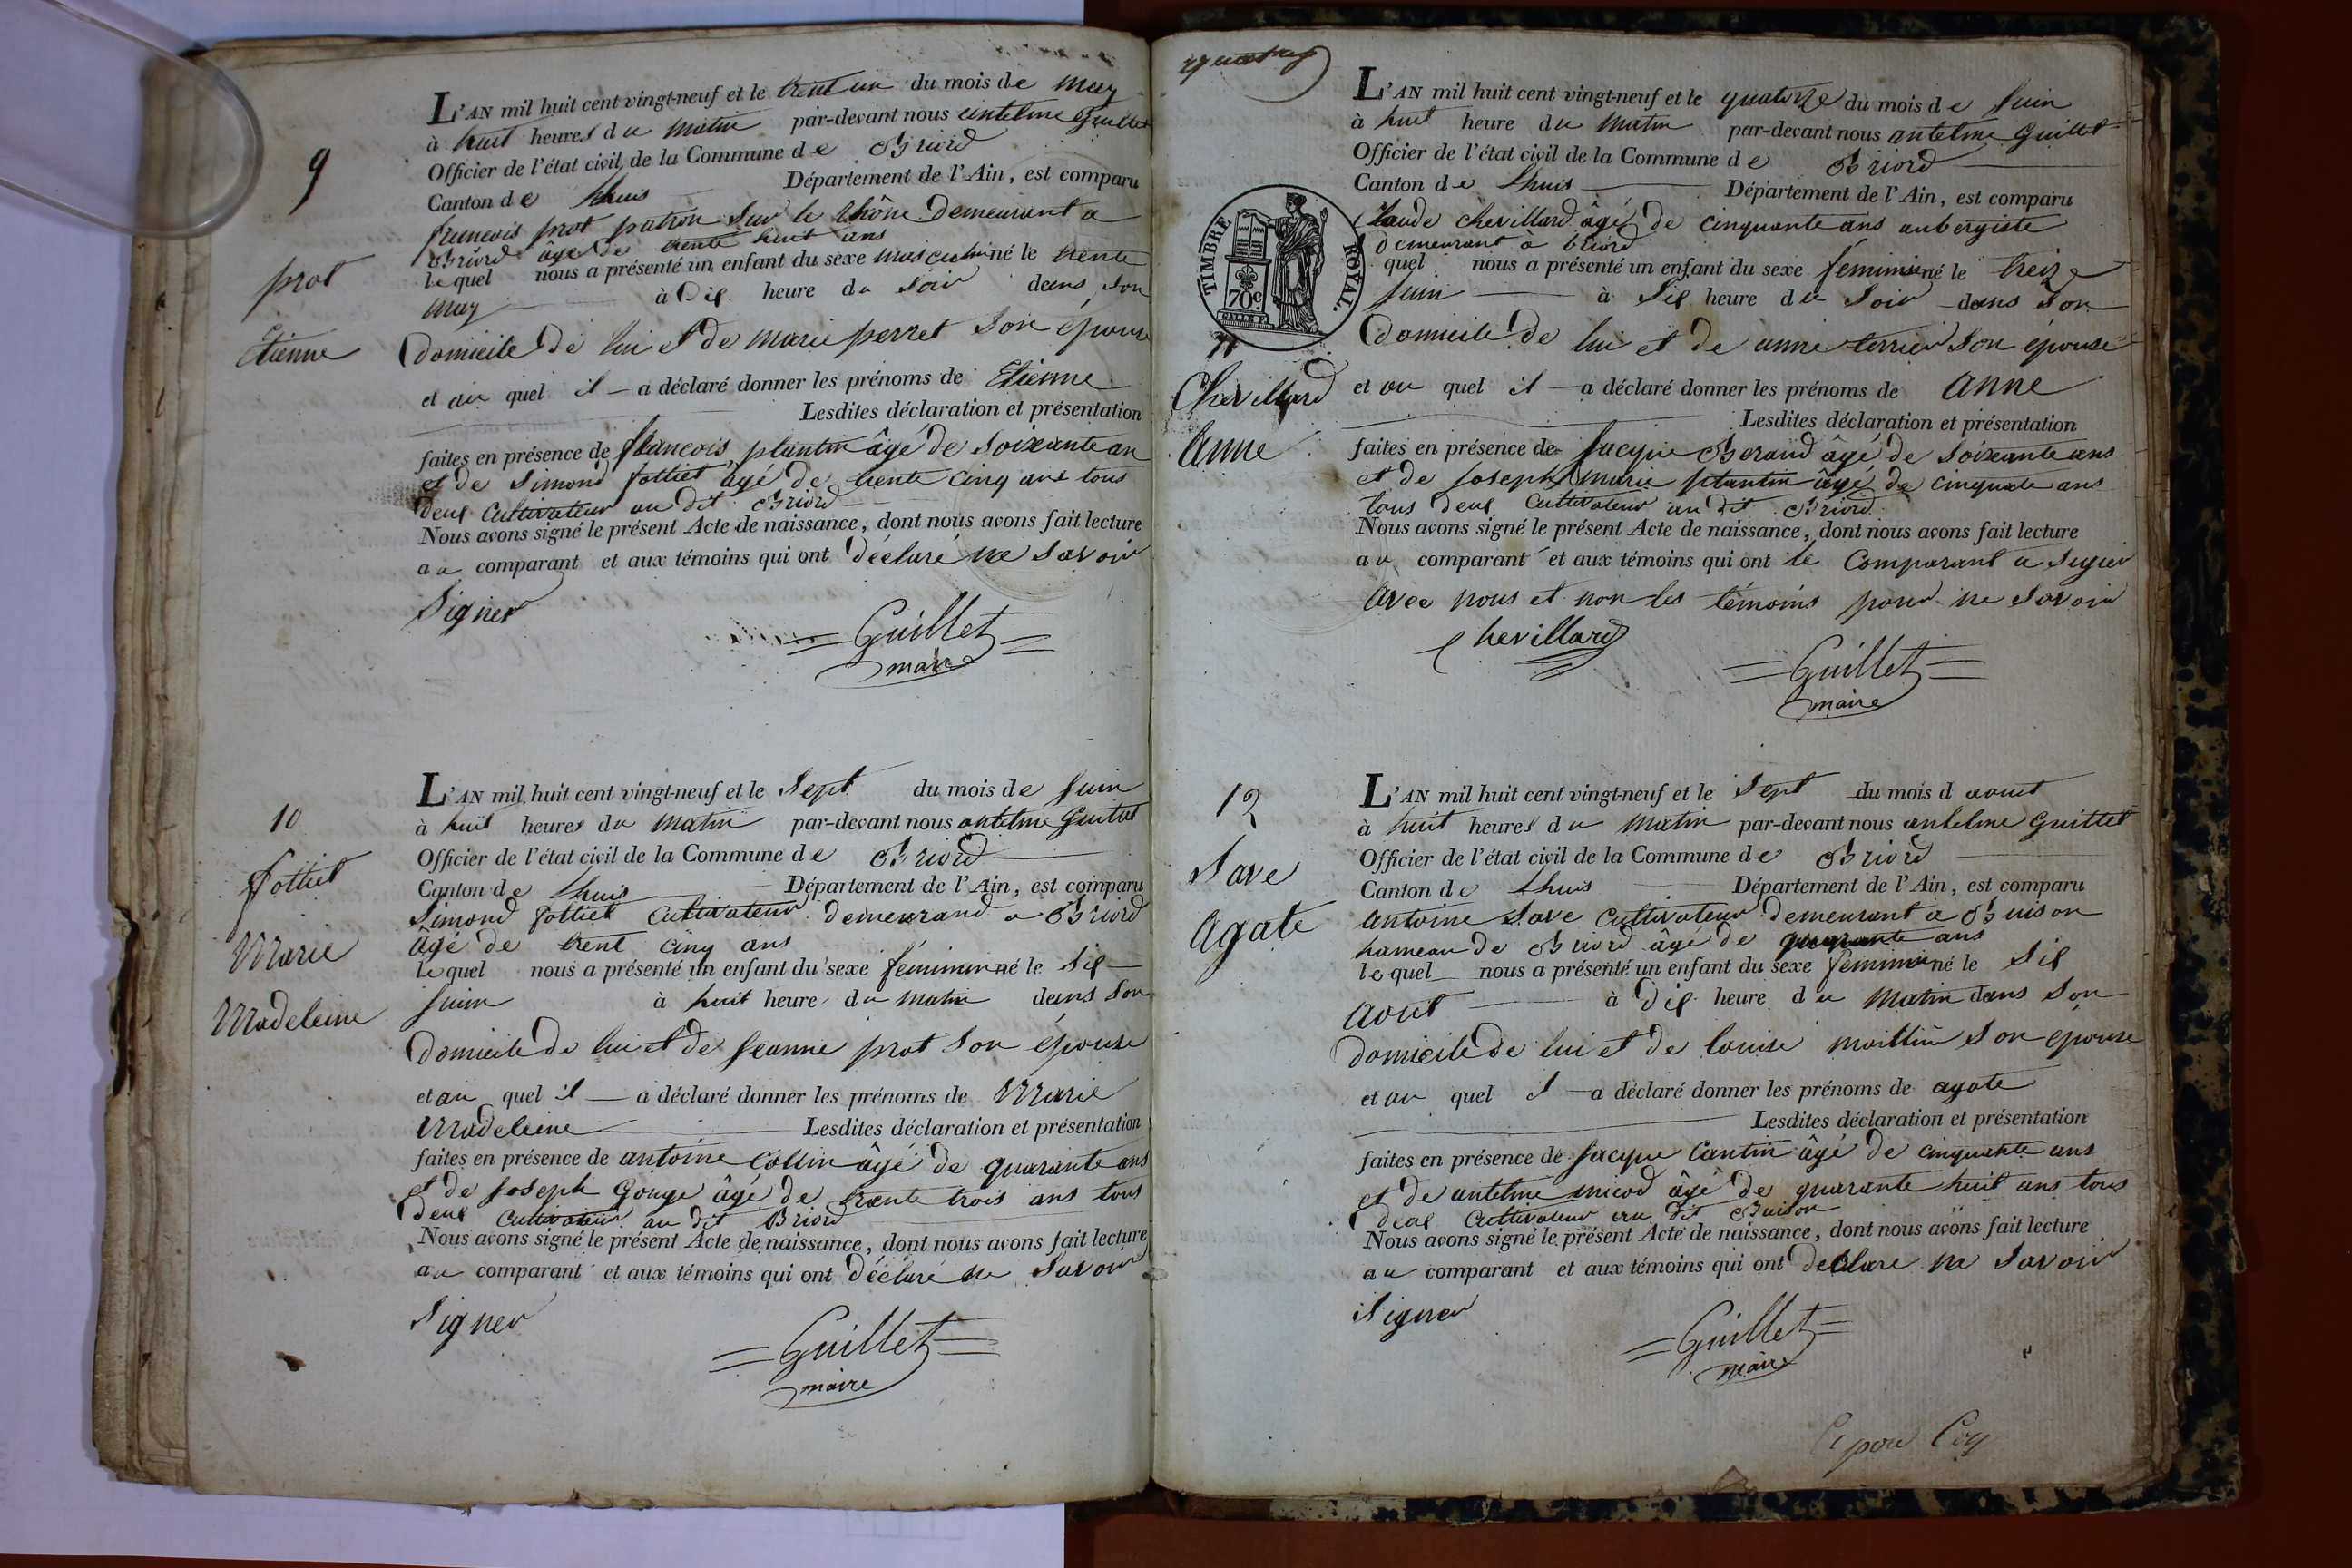 9
prot
Etienne
L'AN mil huit cent vingt-neuf et le trent un du mois de may
à huit heures du matin par-devant nous antelme Guillet
Officier de l'état civil de la Commune de Briord
Canton de Lhuis Département de l'Ain, est comparu
francois prot patron sur le rhône demeurant a
Briord âgé de trente huit ans
lequel nous a présenté un enfant du sexe masculin né le trente
may à dix heure du soir dans son
domicile de lui et de marie perret son épouse
et au quel il a déclaré donner les prénoms de Etienne
Lesdites déclaration et présentation
faites en présence de francois plantin âgé de soixante an
et de simond folliet âgé de trente cinq ans tous
deux cultivateur au dit Briord
Nous avons signé le présent Acte de naissance, dont nous avons fait lecture
au comparant et aux témoins qui ont déclaré ne savoir
signer
Guillet
maire
10
folliet
Marie
Madeleine
L'AN mil huit cent vingt-neuf et le sept du mois de juin
à huit heures du matin par-devant nous antelme Guillet
Officier de l'état civil de la Commune de Briord
Canton de Lhuis Département de l'Ain, est comparu
simond folliet cultivateur demeurand a Briord
âgé de trent cinq ans
lequel nous a présenté un enfant du sexe féminin né le six
juin à huit heure du matin dans son
domicile de lui et de jeanne prot son épouse
et au quel il a déclaré donner les prénoms de Marie
Madeleine Lesdites déclaration et présentation
faites en présence de antoine Collin âgé de quarante ans
et de joseph Gouge âgé de trente trois ans tous
deux cultivateur au dit Briord
Nous avons signé le présent Acte de naissance, dont nous avons fait lecture
au comparant et aux témoins qui ont déclaré ne savoir
signer
Guillet
maire
TIMBRE ROYAL.
70c
11
Chevillard
Anne
L'AN mil huit cent vingt-neuf et le quatorze du mois de juin
à huit heure du matin par-devant nous antelme Guillet
Officier de l'état civil de la Commune de Briord
Canton de Lhuis Département de l'Ain, est comparu
Claude chevillard âgé de cinquante ans aubergiste
demeurant à briord
quel nous a présenté un enfant du sexe féminin né le treize
juin à six heure du soir dans son
domicile de lui et de anne terrier son épouse
et au quel il a déclaré donner les prénoms de anne
Lesdites déclaration et présentation
faites en présence de jacque Beraud âgé de soixante ans
et de joseph marie plantin âgé de cinquate ans
tous deux cultivateur au dit Briord
Nous avons signé le présent Acte de naissance, dont nous avons fait lecture
au comparant et aux témoins qui ont le comparant a signer
avec nous et non les témoins pour ne savoir
Chevillard
Guillet
maire
12
Save
Agate
L'AN mil huit cent vingt-neuf et le sept du mois d aout
à huit heures du matin par-devant nous antelme Guillet
Officier de l'état civil de la Commune de Briord
Canton de Lhuis Département de l'Ain, est comparu
antoine Save cultivateur demeurant a Buison
hameau de Briord âgé de quarante ans
lequel nous a présenté un enfant du sexe féminin né le six
aout à dix heure du matin dans son
domicile de lui et de louise son épouse
et au quel il a déclaré donner les prénoms de agate
Lesdites déclaration et présentation
faites en présence de jacque Cantin âgé de cinquante ans
et de antelme micod âgé de quarante huit ans tous
deux cultivateur au dit Buison
Nous avons signé le présent Acte de naissance, dont nous avons fait lecture
au comparant et aux témoins qui ont déclare ne savoir
signer
Guillet
maire